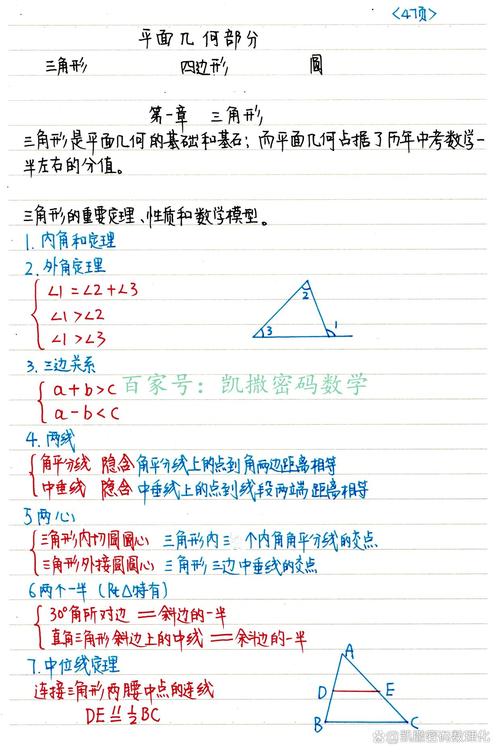 <47页>
平面几何部分
三角形 四边形 圆
第一章 三角形
三角形是平面几何的基础和基石；而平面几何占据了历年中考数学一
半左右的分值。
三角形的重要定理、性质和数学模型。
1. 内角和定理
2. 外角定理
∠1=∠2+∠3
∠1>∠2
∠1>∠3
2
3
1
3. 三边关系
a+b>c
a-b<c
百家号：凯撒密码数学
4. 两线
角平分线 隐含 角平分线上的点到角两边距离相等
中垂线 隐含 中垂线上的点到线段两端距离相等
5 两心
三角形内切圆圆心 三角形内三个内角角平分线的交点
三角形外接圆圆心 三角形三边中垂线的交点
6 两个一半 (Rt△特有)
30°角所对边 = 斜边的一半
直角三角形斜边上的中线 = 斜边的一半
7. 中位线定理
连接三角形两腰中点的连线
DE∥=½BC
A
D E
B C
@凯撒密码数强化